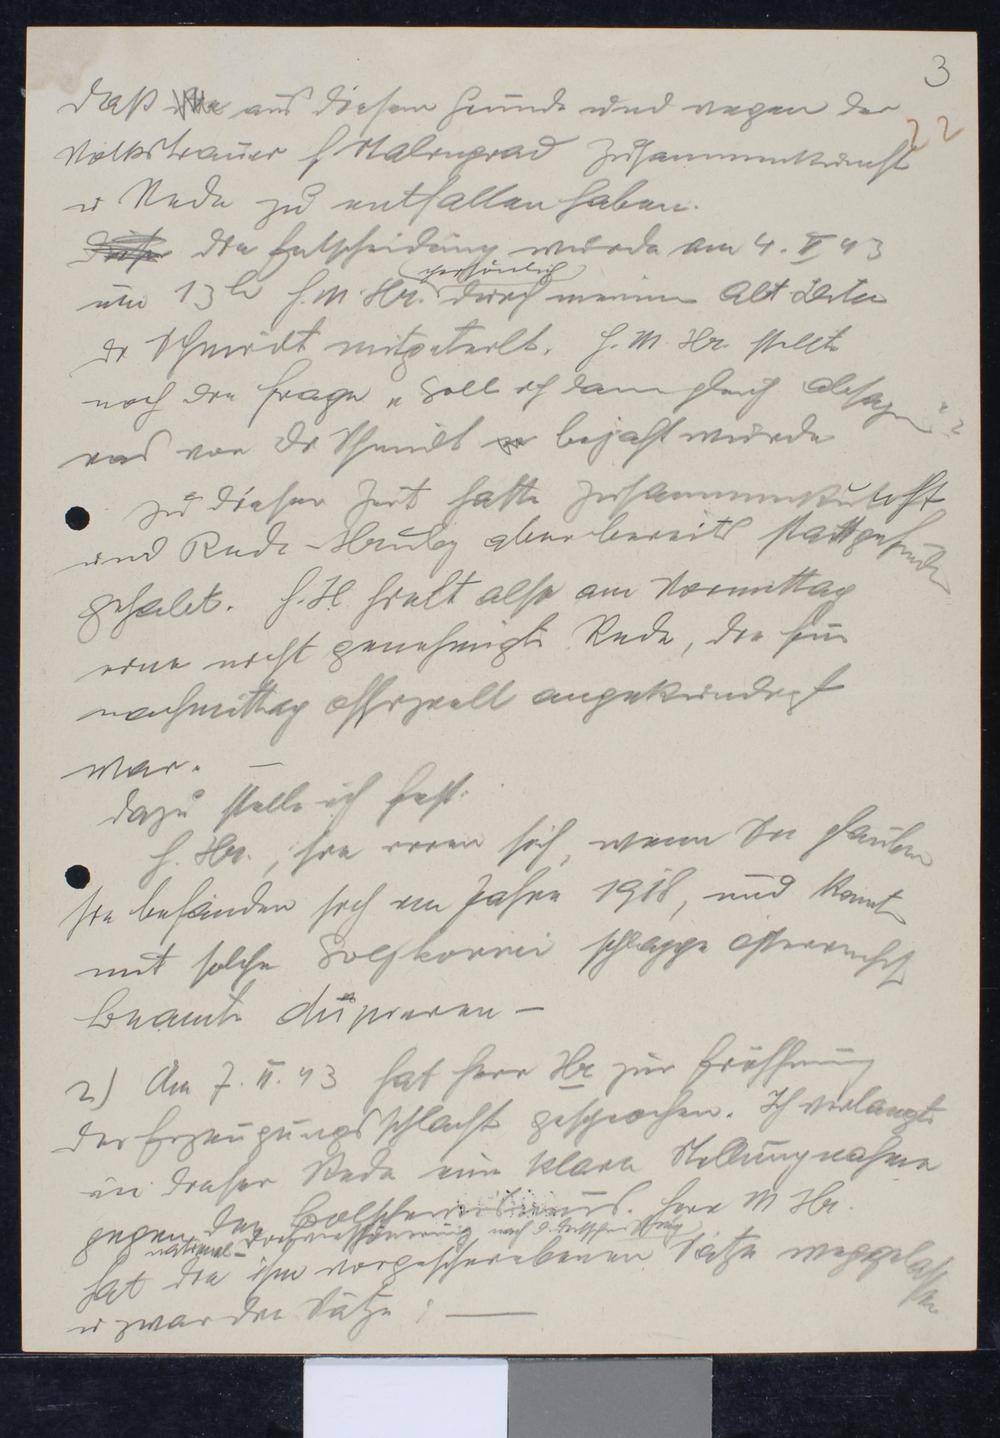 3
22
daß aus diesem Grunde und wegen der
Volkstrauer f Stalingrad Zusammenkunft
u Rede zu entfallen haben.
die Entscheidung wurde am 4. II 43
persönlich
um 13h H. M. Hr. durch meinen Abt. Leiter
Dr Schmidt mitgeteilt. H. M. Hr. stellte
noch die Frage „Soll ich dann gleich absagen"?
was von Dr Schmidt bejaht wurde
Zu dieser Zeit hatte Zusammenkunft
und Rede Hruby aber bereits stattgefunden
gehabt. H. H. hielt also am Vormittag
eine nicht genehmigte Rede, die für
nachmittag offiziell angekündigt
war. —
Dazu stelle ich fest:
H. Hr., sie irren sich, wenn Sie glauben
sie befinden sich im Jahre 1918, und könnten
mit solche schlappe österreichische
Beamte düpieren —
2) Am 7. II. 43 hat Herr Hr zur Eröffnung
der Erzeugungsschlacht gesprochen. Ich verlangte
in dieser Rede eine klare Stellungnahme
gegen den Bolschewismus. Herr M Hr.
national-
hat die ihm vorgeschriebenen Sätze weggelassen
u zwar die Sätze: —